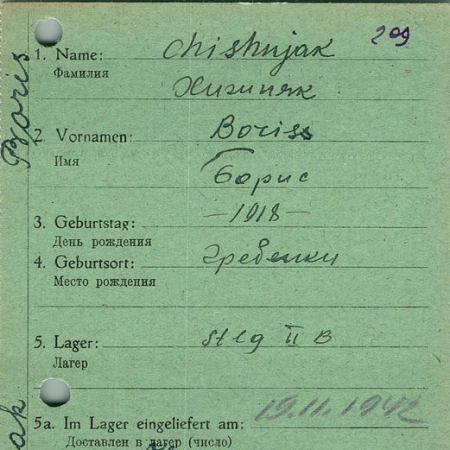 209
1. Name: Chishnjak
Фамилия Хижняк
2. Vornamen: Boriss
Имя Борис
3. Geburtstag: — 1918 —
День рождения
4. Geburtsort: Гребенки
Место рождения
5. Lager: Stlg II B
Лагер
5a. Im Lager eingeliefert am: 19.11.1942
Доставлен в лагер (число)
Boris